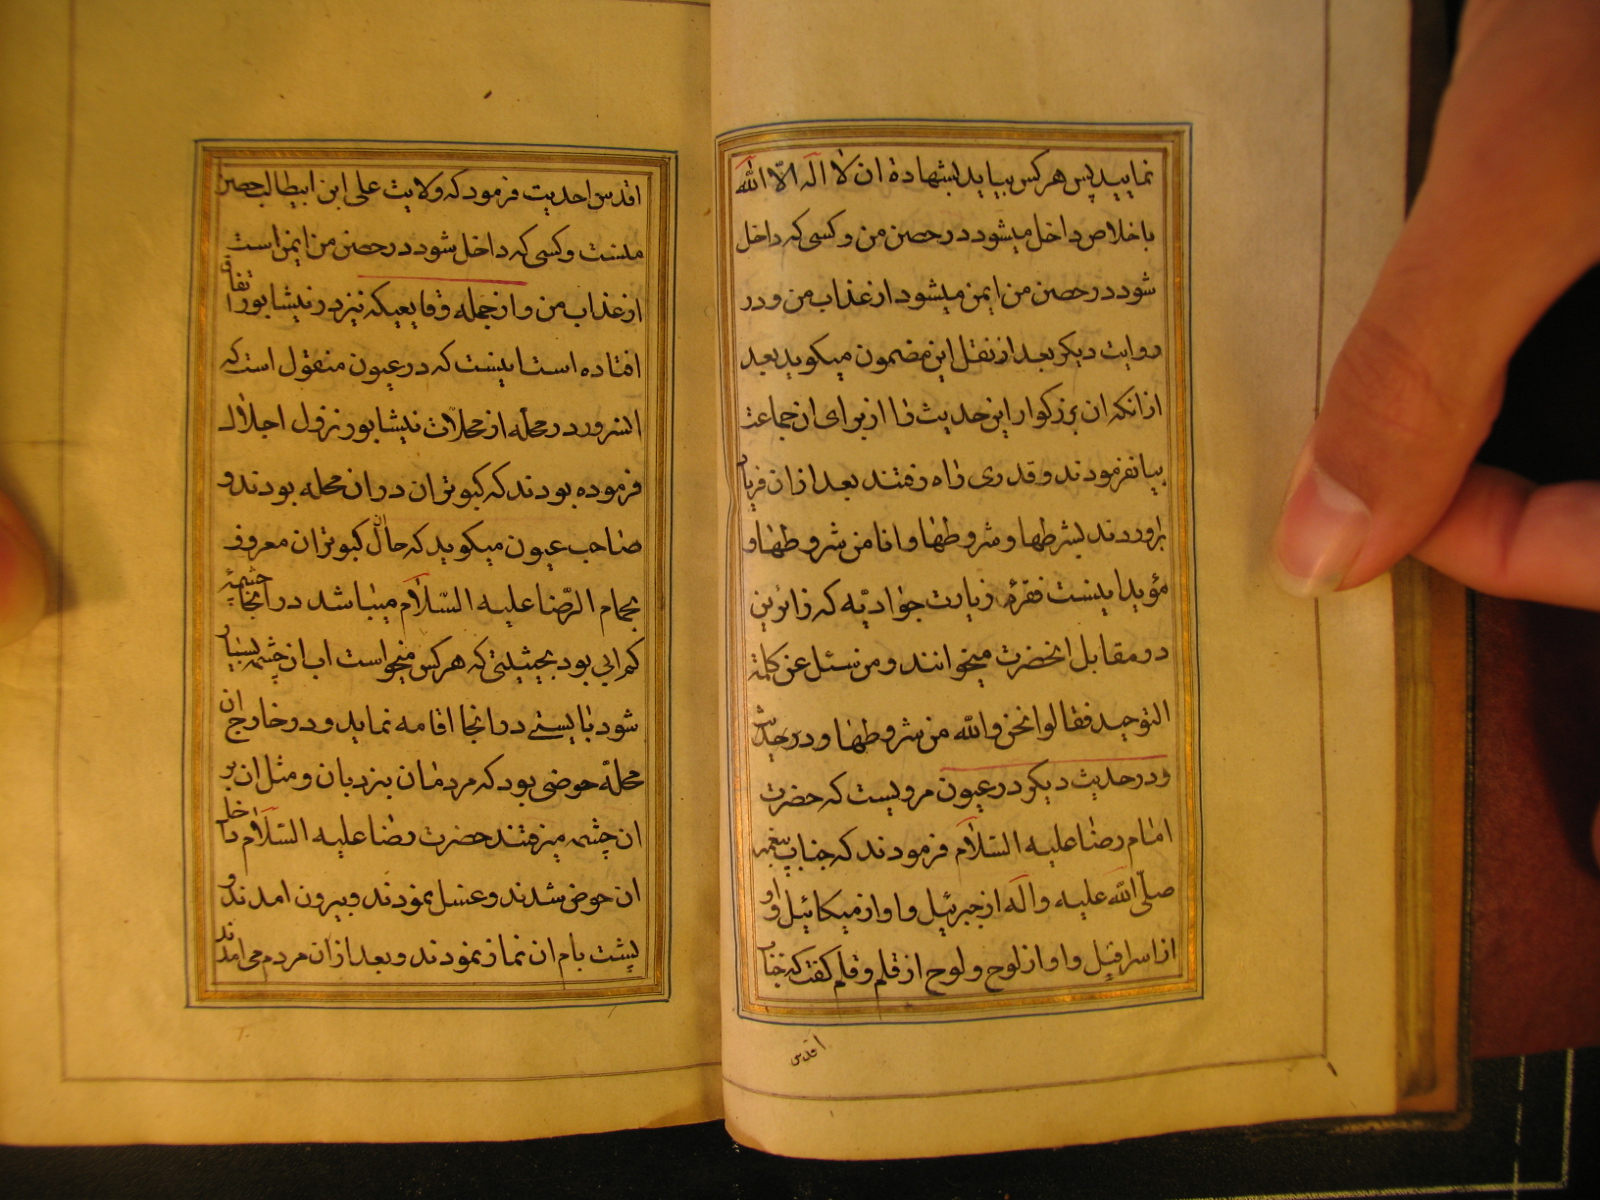 نمایید پس هر کس بیاید بشهادة ان لا اله الا الله
باخلاص داخل میشود در حصن من و کسی که داخل
شود در حصن من ایمن میشود از عذاب من و در
روایت دیکر بعد از نقل این مضمون میکوید بعد
از انکه ان بزرکوار این حدیث را از برای ان جماعت
بیان فرمودند و قدری راه رفتند بعد از ان فریاد
براوردند بشرطها و شروطها و انا من شروطها و
مؤید اینست فقره زیارت جوادیه که زائرین
در مقابل انحضرت میخوانند و من سئل عن کلمة
التوحید فقالوا نحن والله من شروطها و در حدیث
و در حدیث دیکر در عیون مرویست که حضرت
امام رضا علیه السلام فرمودند که جناب پیغمبر
صلی الله علیه و اله از جبرئیل و او از میکائیل و او
از اسرافیل و او از لوح و لوح از قلم و قلم کفت که جناب
اقدس
اقدس احدیت فرمود که ولایت علی ابن ابیطالب حصن
منست و کسی که داخل شود در حصن من ایمن است
از عذاب من و از جمله وقایعیکه نیز در نیشابور اتفاق
افتاده است اینست که در عیون منقول است که
السرور در محله از محلات نیشابور نزول اجلال
فرموده بودند که کبوتران در ان محله بودند و
صاحب عیون میکوید که حال کبوتران معروف
بحمام الرضا علیه السلام میباشد در انجا چشمه
کم ابی بود بحیثیتی که هر کس میخواست اب ان چشمه بسیار
شود بایستی در انجا اقامه نماید و در خارج ان
محله حوضی بود که مردمان بنردبان و مثل ان بر
ان چشمه میرفتند حضرت رضا علیه السلام داخل
ان حوض شدند و غسل نمودند و بیرون امدند و
پشت بام ان نماز نمودند و بعد از ان مردم می امدند